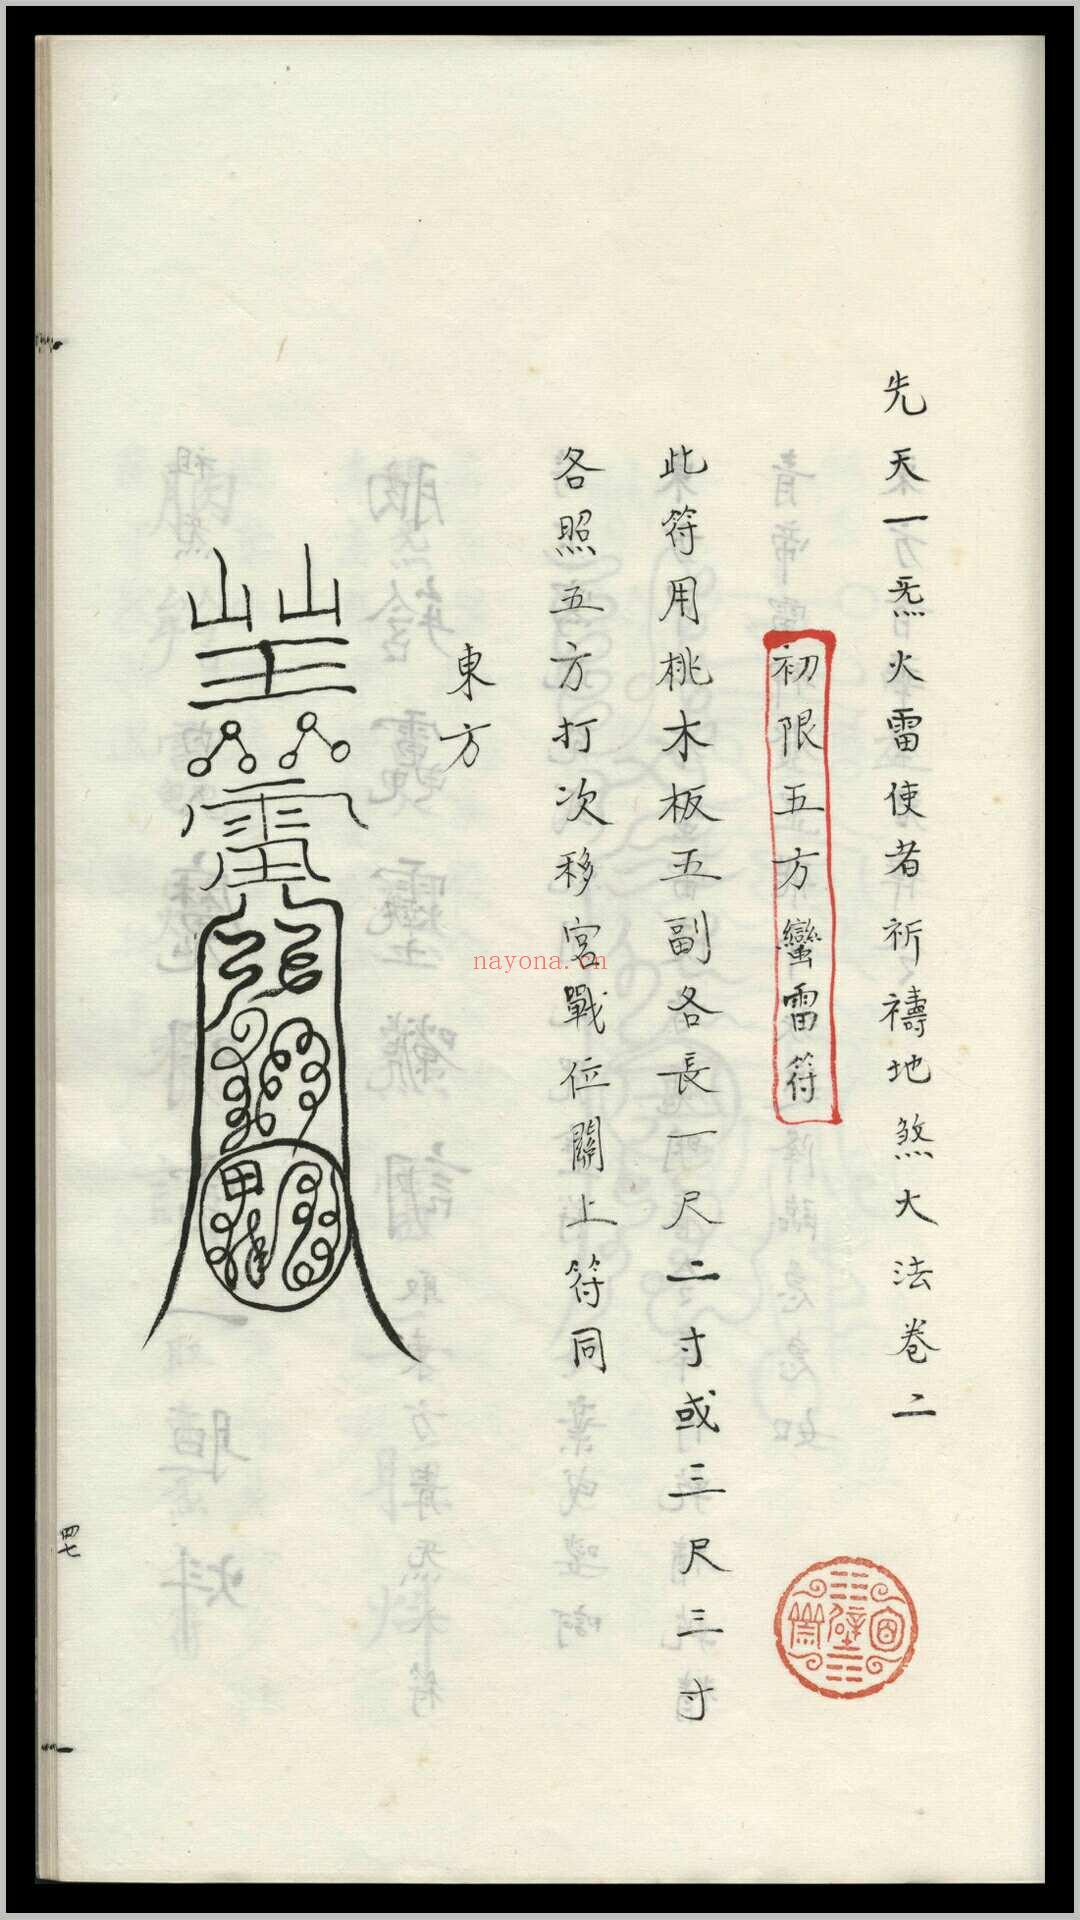 先天一炁火雷使者祈禱地煞大法卷二
初限五方蠻雷符
此符用桃木板五副各長一尺二寸或三尺三寸
各照五方打次移宮戰位關上符同
東方
四七
nayona.cn